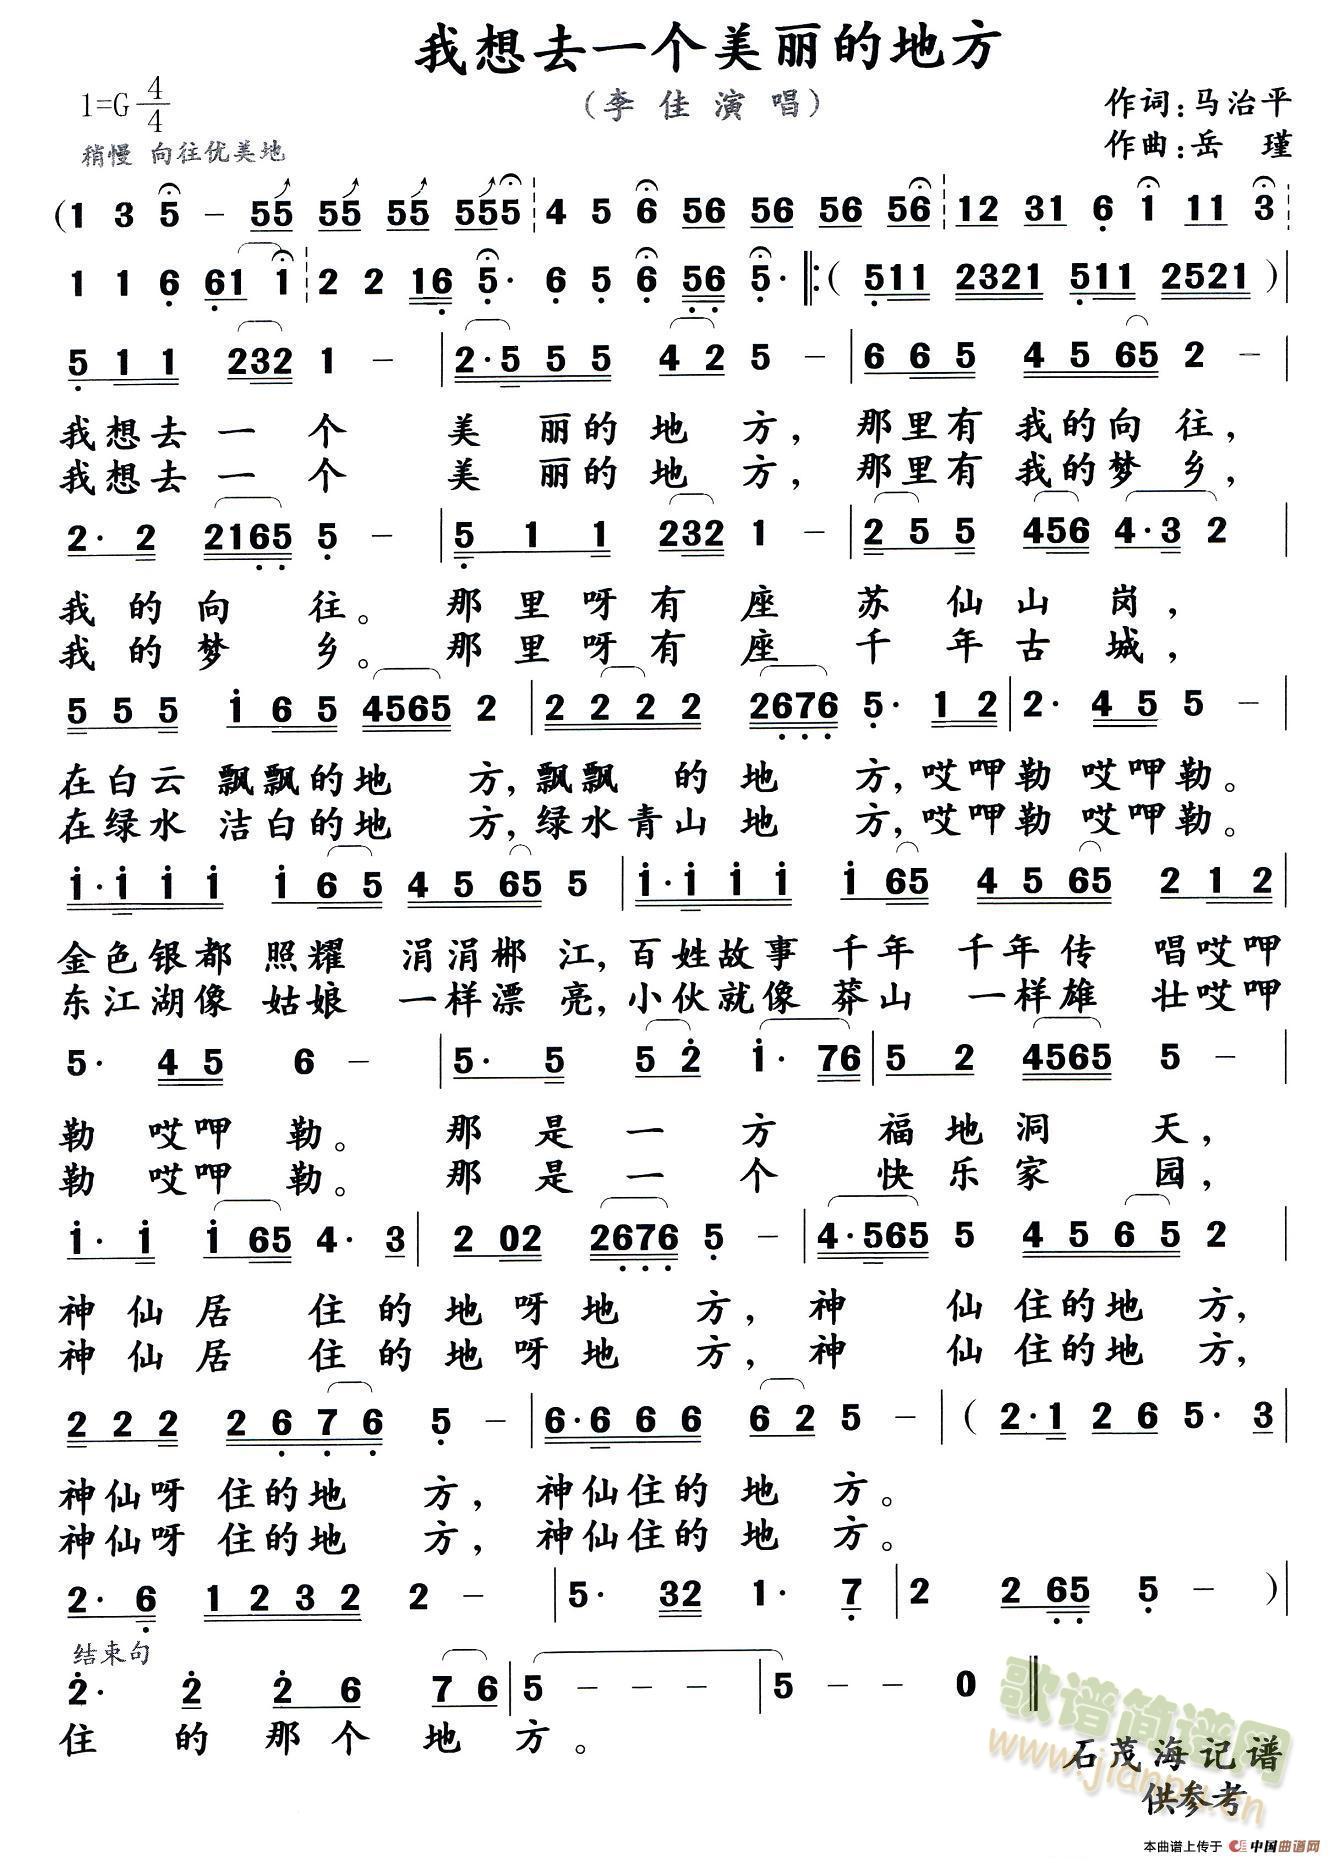 我想去一个美丽的地方
(李佳演唱)
1=G 4/4
作词:马治平
稍慢 向往优美地
作曲:岳 瑾
(1 3 5 – 55 55 55 555 4 5 6 56 56 56 56 12 31 6 1 11 3
1 1 6 61 1 2 2 16 5· 6 5 6 56 5· ‖:( 511 2321 511 2521 )|
5 1 1 232 1 – | 2·5 5 5 4 2 5 – | 6 6 5 4 5 65 2 – |
我想去一个 美 丽的地 方, 那里有 我的向 往,
我想去一个 美 丽的地 方, 那里有 我的梦 乡,
2· 2 2165 5 – | 5 1 1 232 1 – | 2 5 5 456 4·3 2 |
我 的 向 往。 那 里 呀 有 座 苏 仙 山 岗,
我 的 梦 乡。 那 里 呀 有 座 千 年 古 城,
5 5 5 i 6 5 4565 2 | 2 2 2 2 2676 5· 1 2 | 2· 4 5 5 – |
在白云 飘飘的地 方,飘飘 的 地 方,哎呷勒 哎呷勒。
在绿水 洁白的地 方,绿水青山 地 方,哎呷勒 哎呷勒。
i·i i i i 6 5 4 5 65 5 | i·i i i i 65 4 5 65 2 1 2 |
金色银都 照耀 涓涓郴 江,百姓故事 千年 千年传 唱哎呷
东江湖像 姑娘 一样漂 亮,小伙就像 莽山 一样雄 壮哎呷
5· 4 5 6 – | 5· 5 5 2 i· 76 | 5 2 4565 5 – |
勒 哎呷 勒。 那 是 一 方 福 地 洞 天,
勒 哎呷 勒。 那 是 一 个 快 乐 家 园,
i· i i 65 4· 3 | 2 02 2676 5 – | 4·565 5 4 5 6 5 2 |
神 仙 居 住 的 地 呀 地 方, 神 仙 住的地 方,
神 仙 居 住 的 地 呀 地 方, 神 仙 住的地 方,
2 2 2 2 6 7 6 5 – | 6·6 6 6 6 2 5 – | ( 2·1 2 6 5· 3 |
神仙呀 住的地 方, 神仙住的 地 方。
神仙呀 住的地 方, 神仙住的 地 方。
2· 6 1 2 3 2 2 – | 5· 32 1· 7 | 2 2 65 5 – )|
结束句
2· 2 2 6 7 6 | 5 – – – | 5 – – 0 ‖
住 的 那 个 地 方。
歌谱简谱网
www.jianpu.cn
石茂海记谱
供参考
本曲谱上传于 中国曲谱网